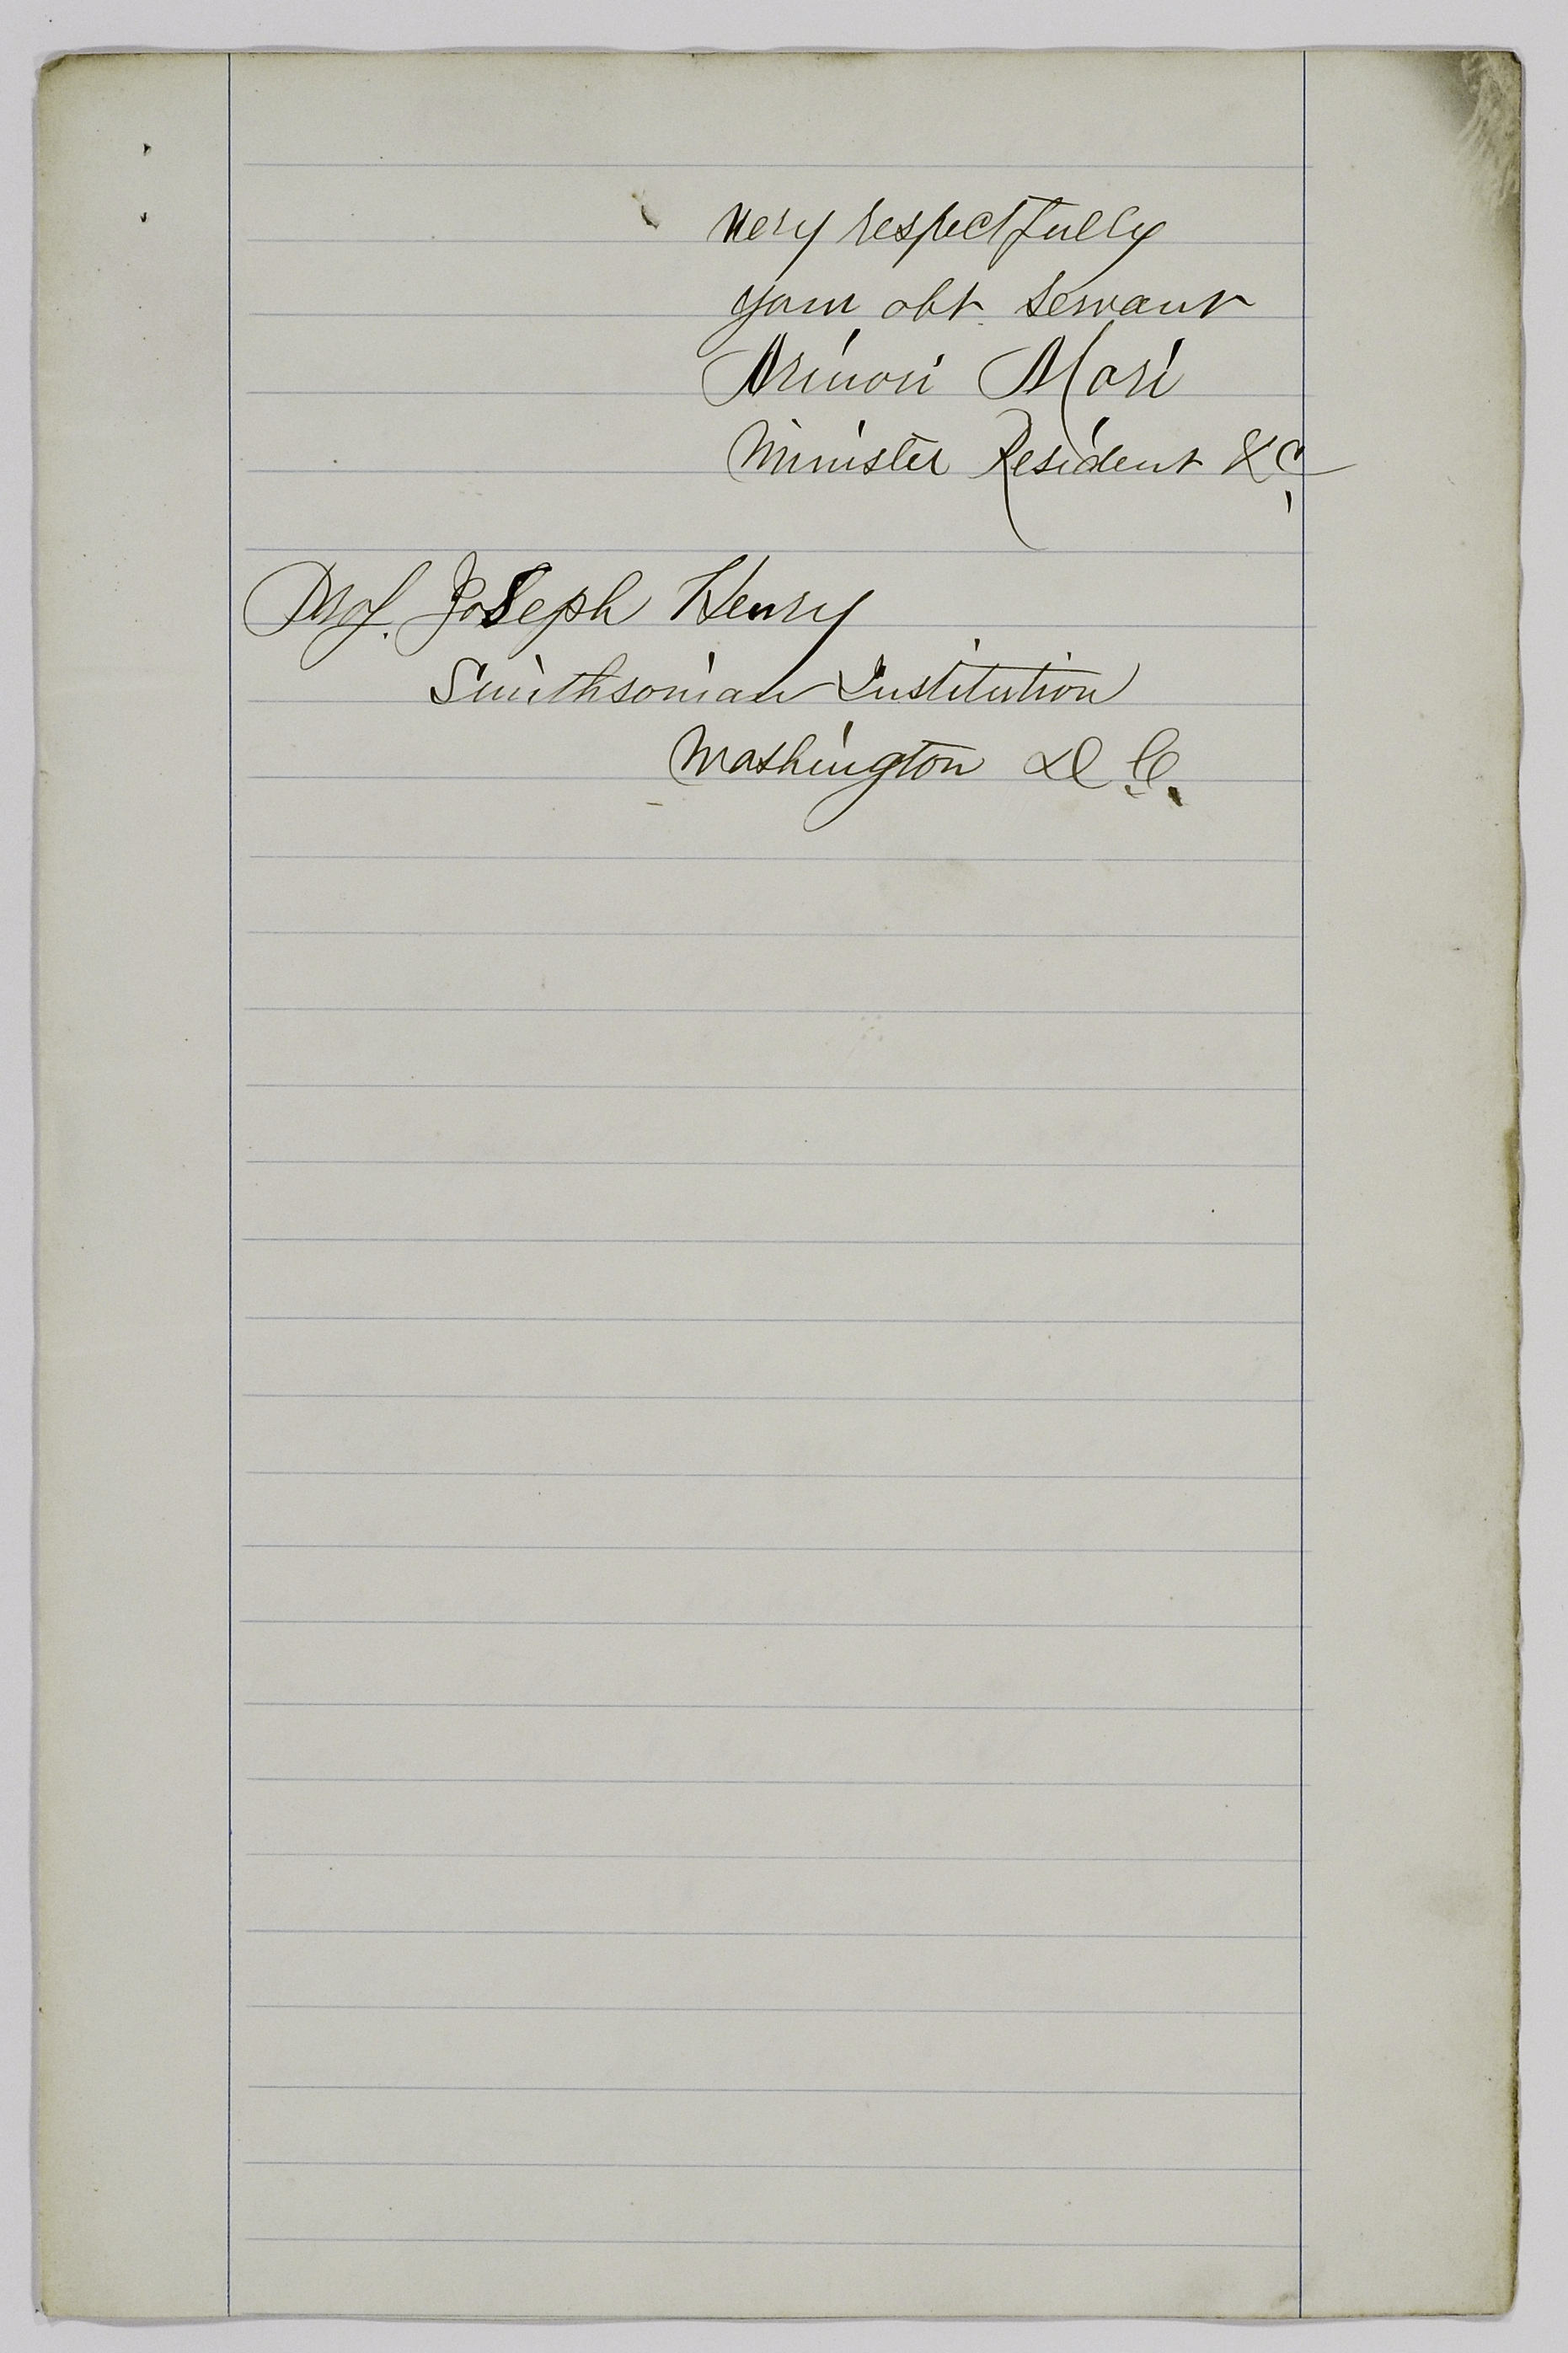 very respectfully
your obt. servant
Arinori Mori
Minister Resident &c,
Prof. Joseph Henry
Smithsonian Institution
Washington D.C.